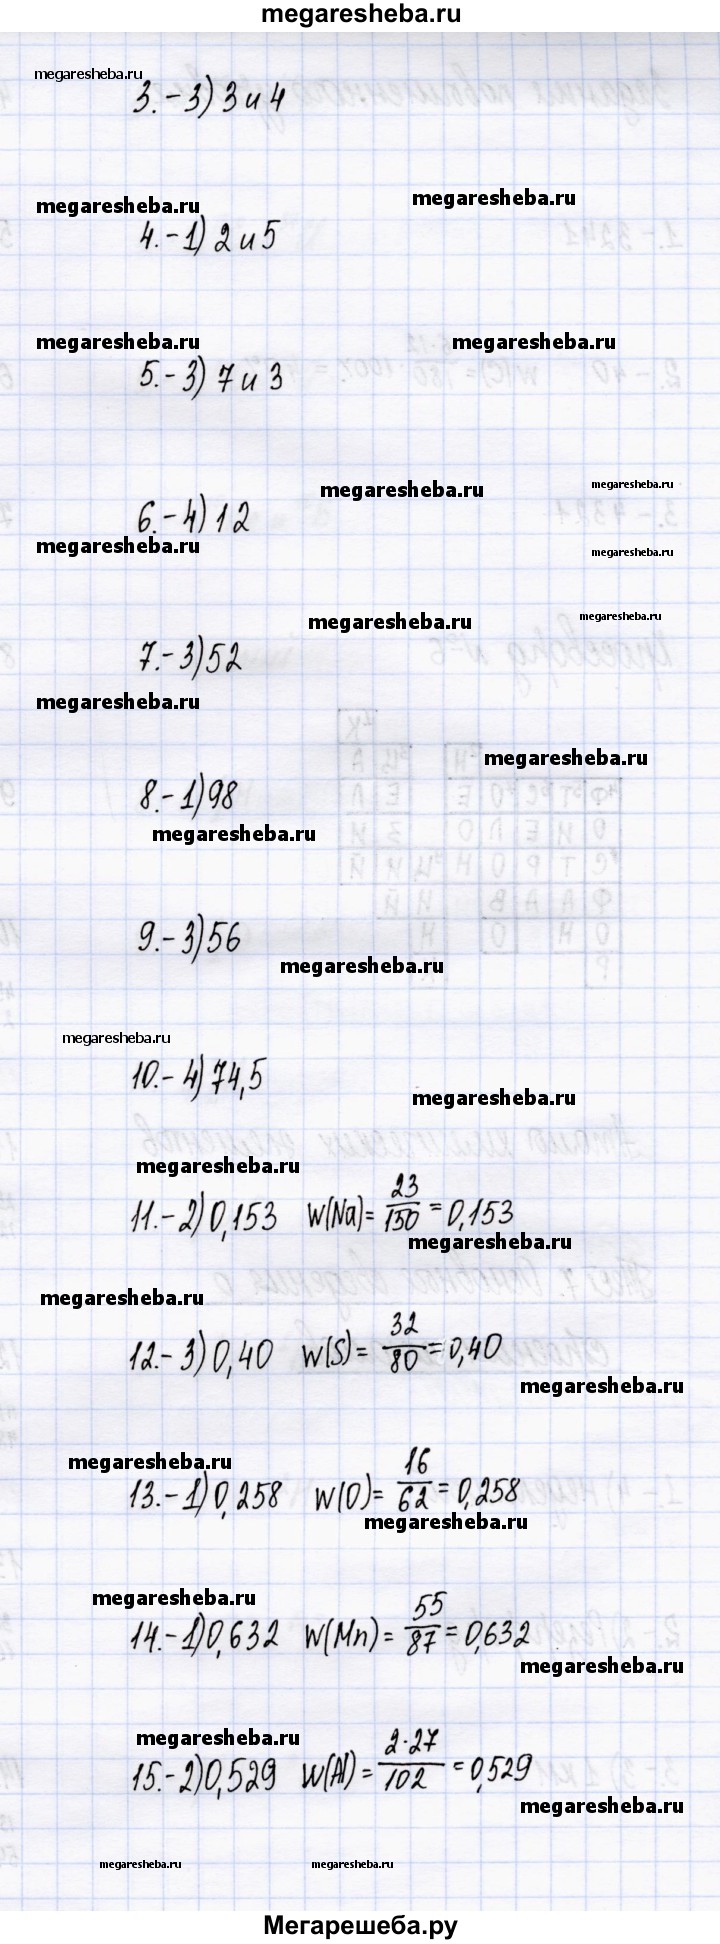 megaresheba.ru
megaresheba.ru
3.-3) 3 и 4
megaresheba.ru
megaresheba.ru
4.-1) 2 и 5
megaresheba.ru
megaresheba.ru
5.-3) 7 и 3
megaresheba.ru
megaresheba.ru
6.-4) 12
megaresheba.ru
megaresheba.ru
megaresheba.ru
megaresheba.ru
7.-3) 52
megaresheba.ru
megaresheba.ru
8.-1) 98
megaresheba.ru
9.-3) 56
megaresheba.ru
megaresheba.ru
10.-4) 74,5
megaresheba.ru
megaresheba.ru
11.-2) 0,153 W(Na)= 23/150 = 0,153
megaresheba.ru
megaresheba.ru
12.-3) 0,40 W(S)= 32/80 = 0,40
megaresheba.ru
megaresheba.ru
13.-1) 0,258 W(O)= 16/62 = 0,258
megaresheba.ru
megaresheba.ru
14.-1) 0,632 W(Mn)= 55/87 = 0,632
megaresheba.ru
megaresheba.ru
15.-2) 0,529 W(Al)= 2·27/102 = 0,529
megaresheba.ru
megaresheba.ru
megaresheba.ru
Мегарешеба.ру